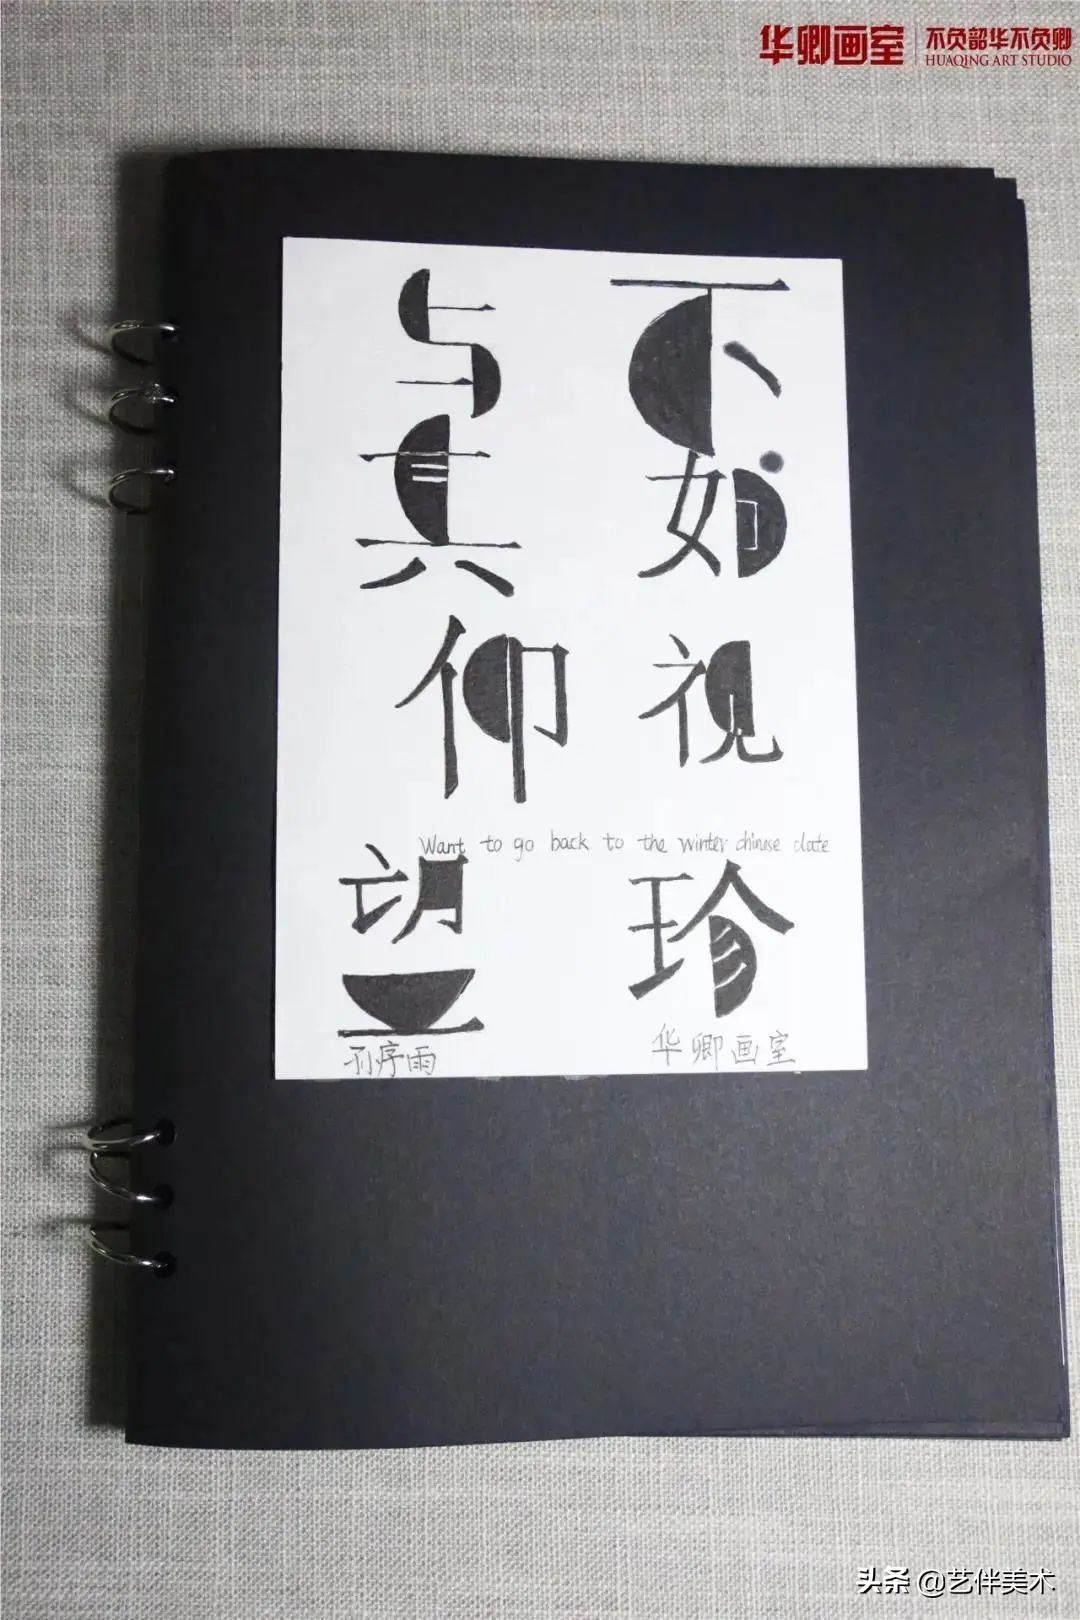 华卿画室
不负韶华不负卿
HUAQING ART STUDIO
与其仰望
不如视珍
Want to go back to the winter chinese date
孙序雨
华卿画室
头条 @艺伴美术